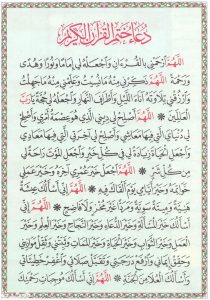 دُعَاءُ خَتْمِ الْقُرْآنِ الْكَرِيمِ
اللَّهُمَّ ارْحَمْنِي بِالْقُرْءَانِ وَاجْعَلْهُ لِي إِمَامًا وَنُورًا وَهُدًى
وَرَحْمَةً اللَّهُمَّ ذَكِّرْنِي مِنْهُ مَا نُسِّيتُ وَعَلِّمْنِي مِنْهُ مَا جَهِلْتُ
وَارْزُقْنِي تِلَاوَتَهُ آنَاءَ اللَّيْلِ وَأَطْرَافَ النَّهَارِ وَاجْعَلْهُ لِي حُجَّةً يَا رَبَّ
الْعَالَمِينَ * اللَّهُمَّ أَصْلِحْ لِي دِينِي الَّذِي هُوَ عِصْمَةُ أَمْرِي وَأَصْلِحْ
لِي دُنْيَايَ الَّتِي فِيهَا مَعَاشِي وَأَصْلِحْ لِي آخِرَتِي الَّتِي فِيهَا مَعَادِي
وَاجْعَلِ الْحَيَاةَ زِيَادَةً لِي فِي كُلِّ خَيْرٍ وَاجْعَلِ الْمَوْتَ رَاحَةً لِي
مِنْ كُلِّ شَرٍّ * اللَّهُمَّ اجْعَلْ خَيْرَ عُمْرِي آخِرَهُ وَخَيْرَ عَمَلِي
خَوَاتِمَهُ وَخَيْرَ أَيَّامِي يَوْمَ أَلْقَاكَ فِيهِ * اللَّهُمَّ إِنِّي أَسْأَلُكَ عِيشَةً
هَنِيَّةً وَمِيتَةً سَوِيَّةً وَمَرَدًّا غَيْرَ مُخْزٍ وَلَا فَاضِحٍ * اللَّهُمَّ إِنِّي
أَسْأَلُكَ خَيْرَ الْمَسْأَلَةِ وَخَيْرَ الدُّعَاءِ وَخَيْرَ النَّجَاحِ وَخَيْرَ الْعِلْمِ وَخَيْرَ
الْعَمَلِ وَخَيْرَ الثَّوَابِ وَخَيْرَ الْحَيَاةِ وَخَيْرَ الْمَمَاتِ وَثَبِّتْنِي وَثَقِّلْ مَوَازِينِي
وَحَقِّقْ إِيمَانِي وَارْفَعْ دَرَجَتِي وَتَقَبَّلْ صَلَاتِي وَاغْفِرْ خَطِيئَاتِي
وَأَسْأَلُكَ الْعُلَا مِنَ الْجَنَّةِ * اللَّهُمَّ إِنِّي أَسْأَلُكَ مُوجِبَاتِ رَحْمَتِكَ